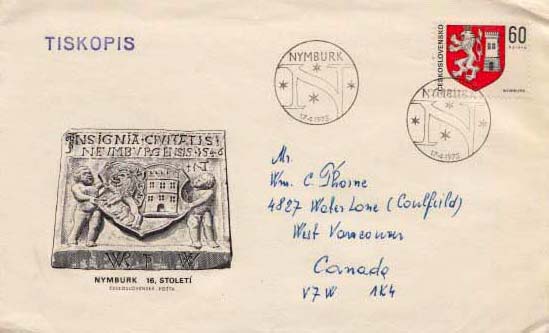 TISKOPIS
NYMBURK
N
17.4.1975
ČESKOSLOVENSKO
60
NYMBURK
NYMBURK
N
17.4.1975
INSIGNIA·CIVITATIS
NEIMBVRGENSIS·1546
W W
NYMBURK 16. STOLETÍ
ČESKOSLOVENSKÁ POŠTA
Mr.
Wm. C. Thorne
4827 Water Lane (Caulfield)
West Vancouver
Canada
V7W 1K4